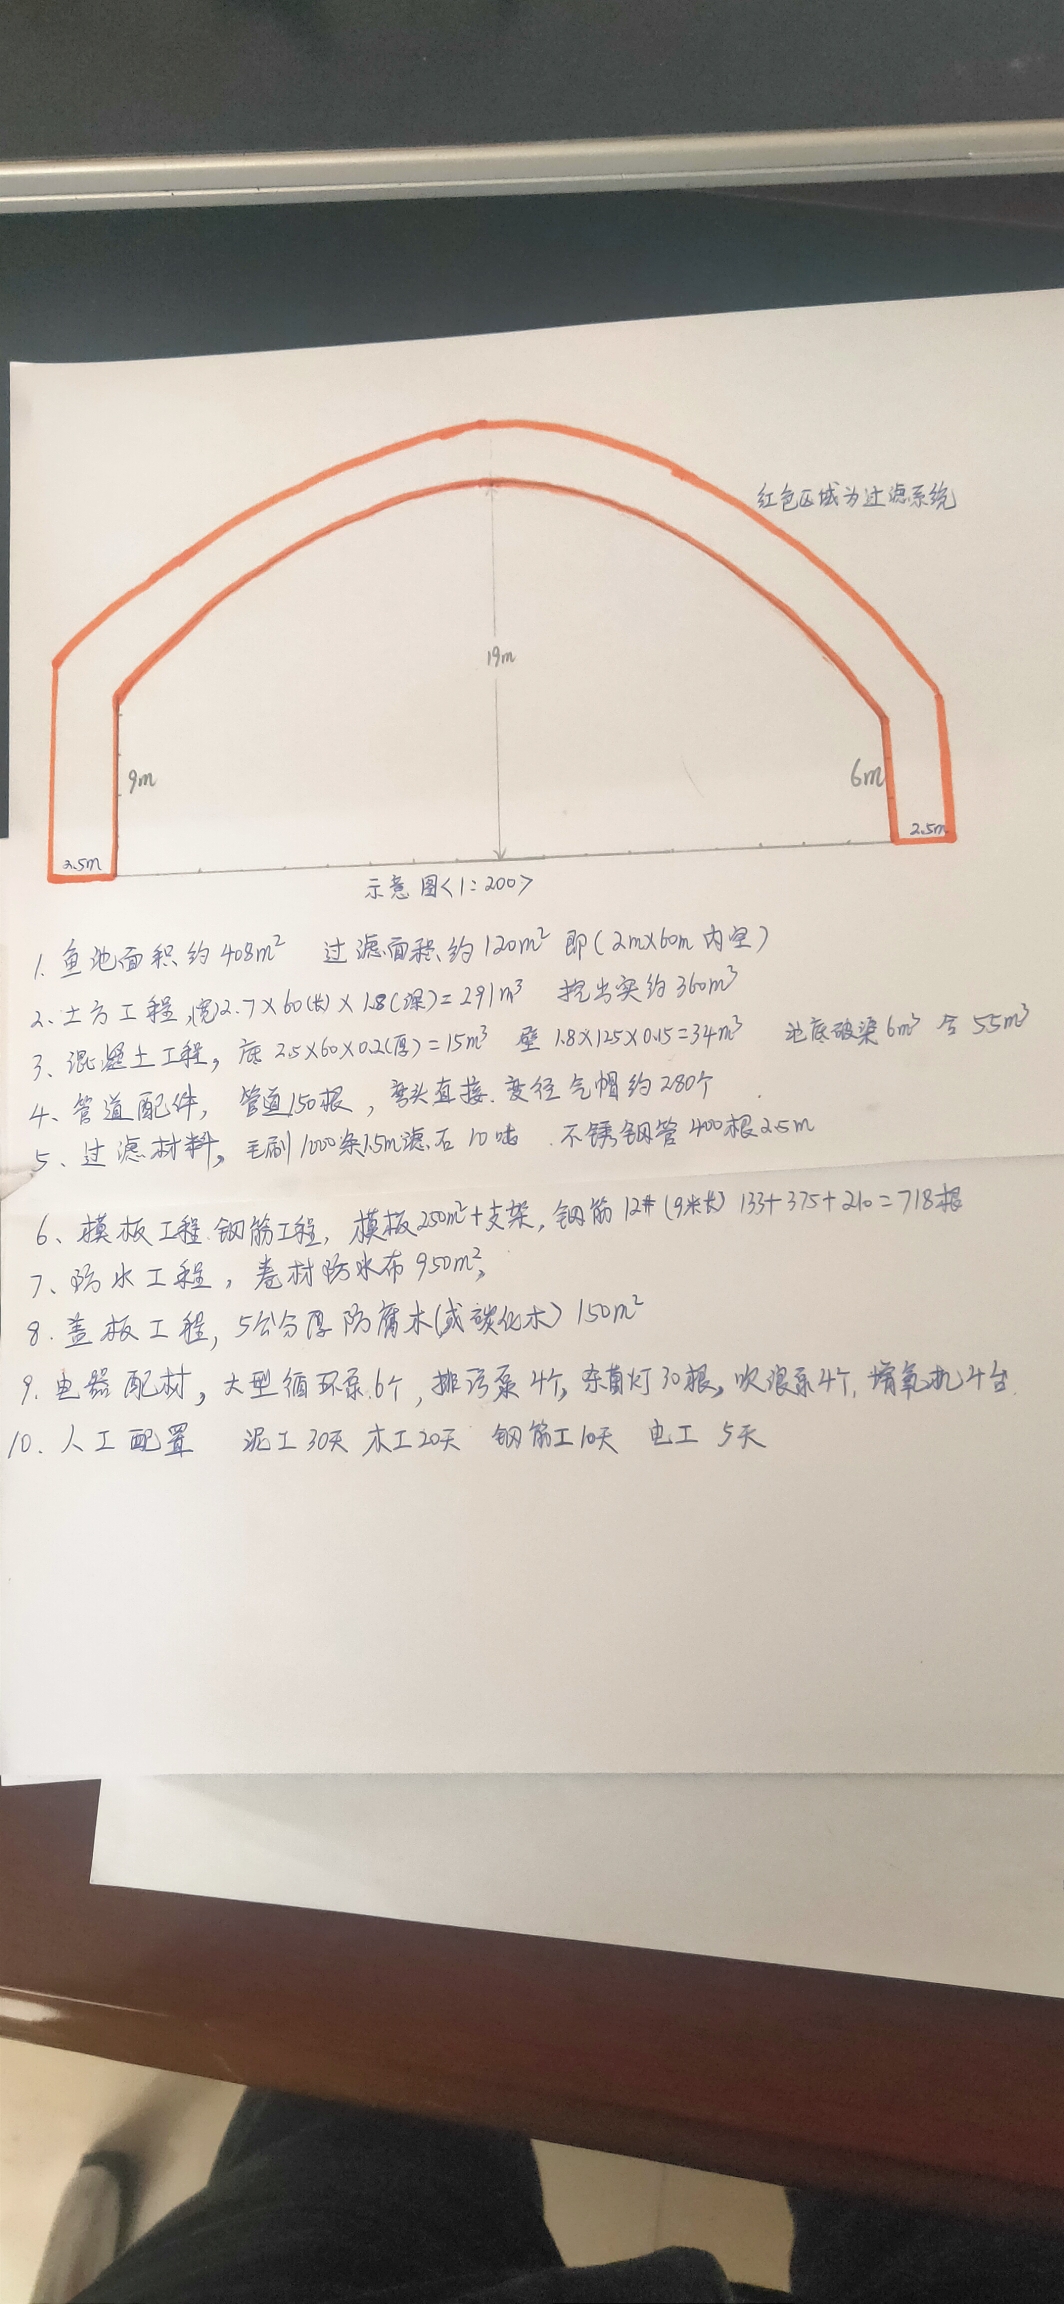 红色区域为过滤系统
19m
9m
6m
2.5m
2.5m
示意图<1:200>
1. 鱼池面积约408m² 过滤面积约120m² 即(2m×60m内空)
2、土方工程,宽2.7×60(长)×1.8(深)=291m³ 挖出实约360m³
3、混凝土工程, 底 2.5×60×0.2(厚)=15m³ 壁 1.8×125×0.15=34m³ 池底破梁6m³ 合 55m³
4、管道配件, 管道150根, 弯头直接、变径 气帽约280个
5、过滤材料, 毛刷1000条1.5m滤石10吨、不锈钢管400根2.5m
6、模板工程、钢筋工程, 模板250m²+支架, 钢筋12#(9米长) 133+375+210=718根
7、防水工程, 卷材防水布950m²,
8. 盖板工程, 5公分厚防腐木(或碳化木) 150m²
9. 电器配材, 大型循环泵6个, 排污泵4个, 杀菌灯30根, 吹浪泵4个, 增氧机4台.
10、人工配置 泥工30天 木工20天 钢筋工10天 电工 5天